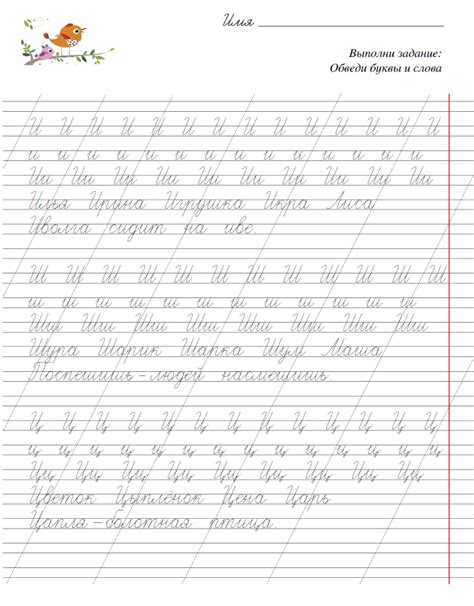 Имя
Выполни задание:
Обведи буквы и слова
И И И И И И И И И И И И И И
и и и и и и и и и и и и и и и
Ии Ии Ии Ии Ии Ии Ии Ии Ии Ии
Илья Ирина Игрушка Икра Лиса
Иволга сидит на иве.
Ш Ш Ш Ш Ш Ш Ш Ш Ш Ш Ш Ш
ш ш ш ш ш ш ш ш ш ш ш ш
Шш Шш Шш Шш Шш Шш Шш Шш
Шура Шарик Шапка Шум Маша
Поспешишь – людей насмешишь.
Ц Ц Ц Ц Ц Ц Ц Ц Ц Ц Ц Ц Ц
ц ц ц ц ц ц ц ц ц ц ц ц ц ц
Цц Цц Цц Цц Цц Цц Цц Цц Цц
Цветок Цыплёнок Цена Царь
Цапля – болотная птица.